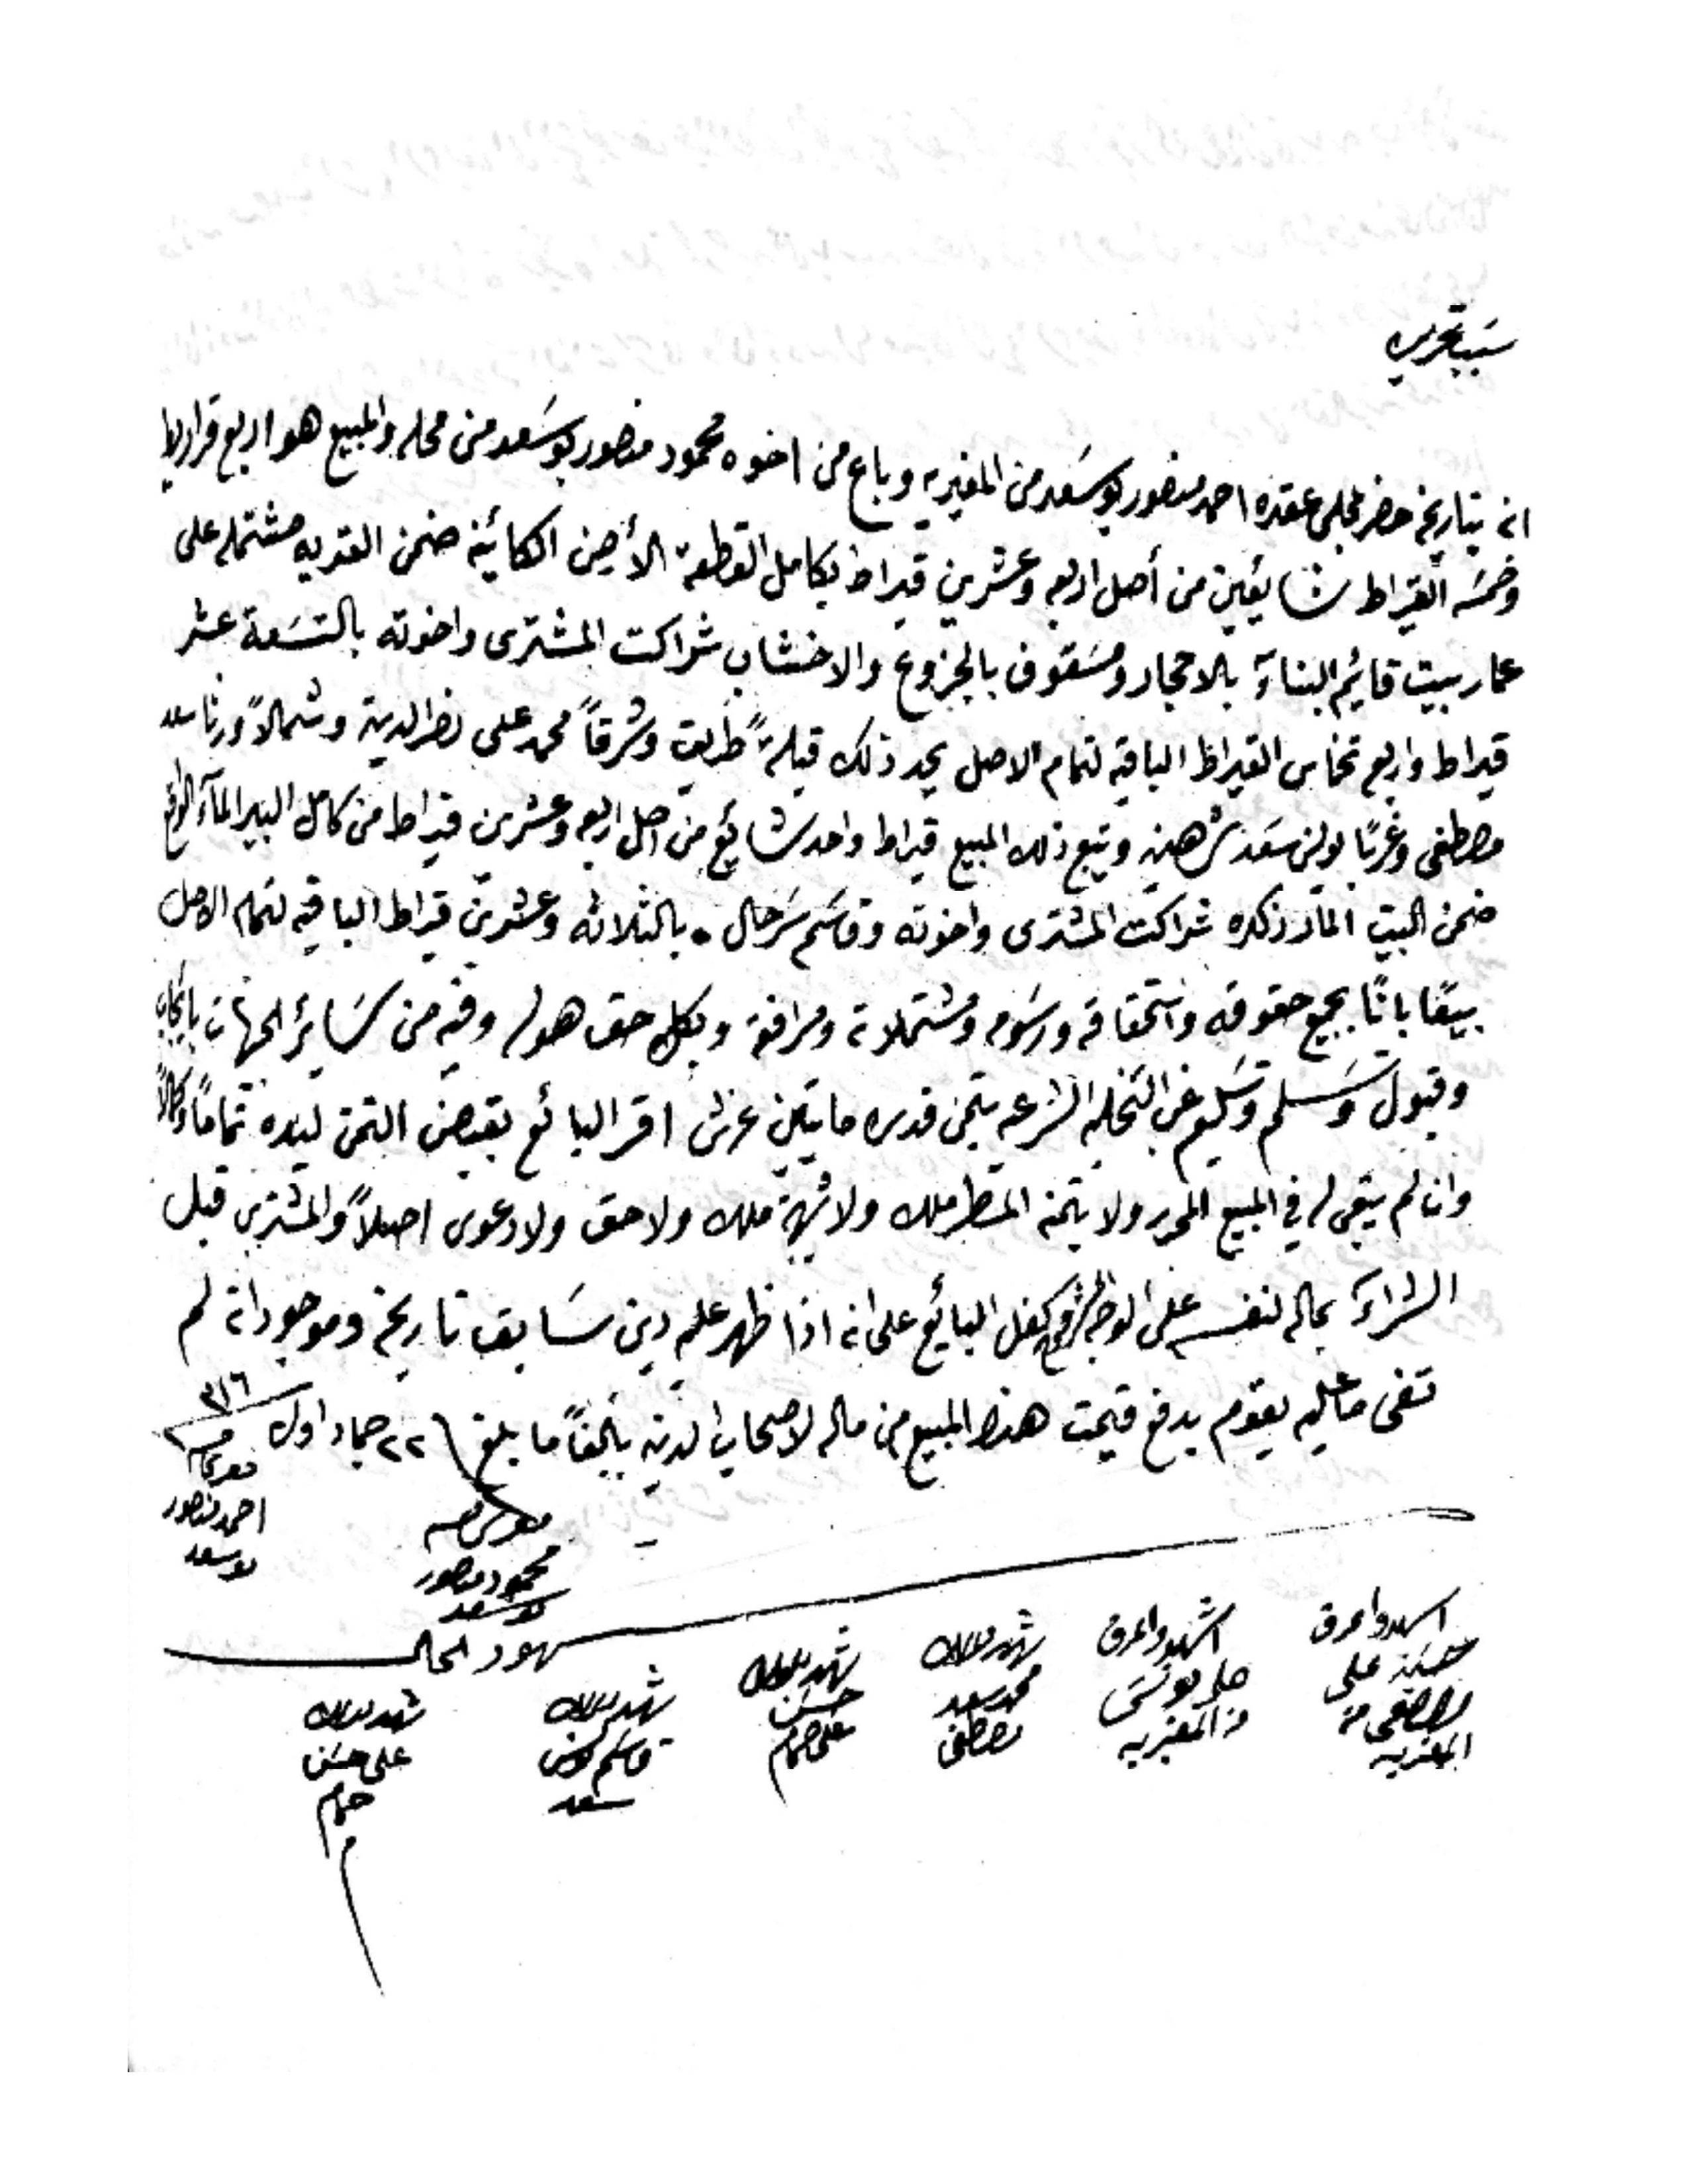 سبب تحريره
انه بتاريخه حضر لمجلس عقده احمد منصور بو سعد من المغيريه وباع من اخوه محمود منصور بو سعد من محله والمبيع هو اربع قراريط
وخمسة القيراط شايعين من أصل اربعه وعشرين قيراط بكامل القطعة الأرض الكائنة ضمن القريه مشتمله على
عمار بيت قائم البنآء بالاحجار ومسقوف بالجزوع والاخشاب شراكت المشترى واخوته بالتسعة عشر
قيراط واربع تخماس القيراط الباقيه لتمام الاصل يحد ذلك قبلةً طريق وشرقاً محمد على نصر الدين وشمالاً ورثا سعد
مصطفى وغربًا يونس سعد شرهين ويتبع ذلك المبيع قيراط واحد شائع من اصل اربعه وعشرين قيراط من كامل البير المآء الواقع
ضمن البيت المار ذكره شراكت المشترى واخوته وقاسم سرحال بالثلاثه وعشرين قيراط الباقيه لتمام الاصل
بيعًا باتًا بجميع حقوقه واستحقاقه ورسومه ومشتملاته ومرافقه وبكل حق هو له وفيه من سائر الجهات بايجاب
وقبول وتسلم وتسليم غب التخليه الشرعيه بثمن قدره مايتين غرش اقر البائع بقبض الثمن ليده تمامًا وكمالاً
وان لم يبقى له في المبيع المحرر ولا بثمنه المسطر ملك ولا شبهة ملك ولا حق ولا دعوى اصلاً والمشترى قبل
الشرآء بماله لنفسه على الوجه المشروح وكفل البائع على انه اذا ظهر عليه دين سابق تاريخه وموجوداته لم
تفى ما عليه يقوم بدفع قيمت هذا المبيع من ماله لاصحاب الدين بالغاً ما بلغ ٢٢ جماد اول ٣١٦
احمد منصور
بو سعد
محمود منصور
بو سعد
شهود الحال
حسن على
مصطفى من
المغيريه
اشهد واعرف
على يونس
من المغيريه
شهد بذلك
محمد سعد
مصطفى
شهد بذلك
حسن
على همام
شهد بذلك
قاسم يونس
سعد
شهد بذلك
على حسن
همام